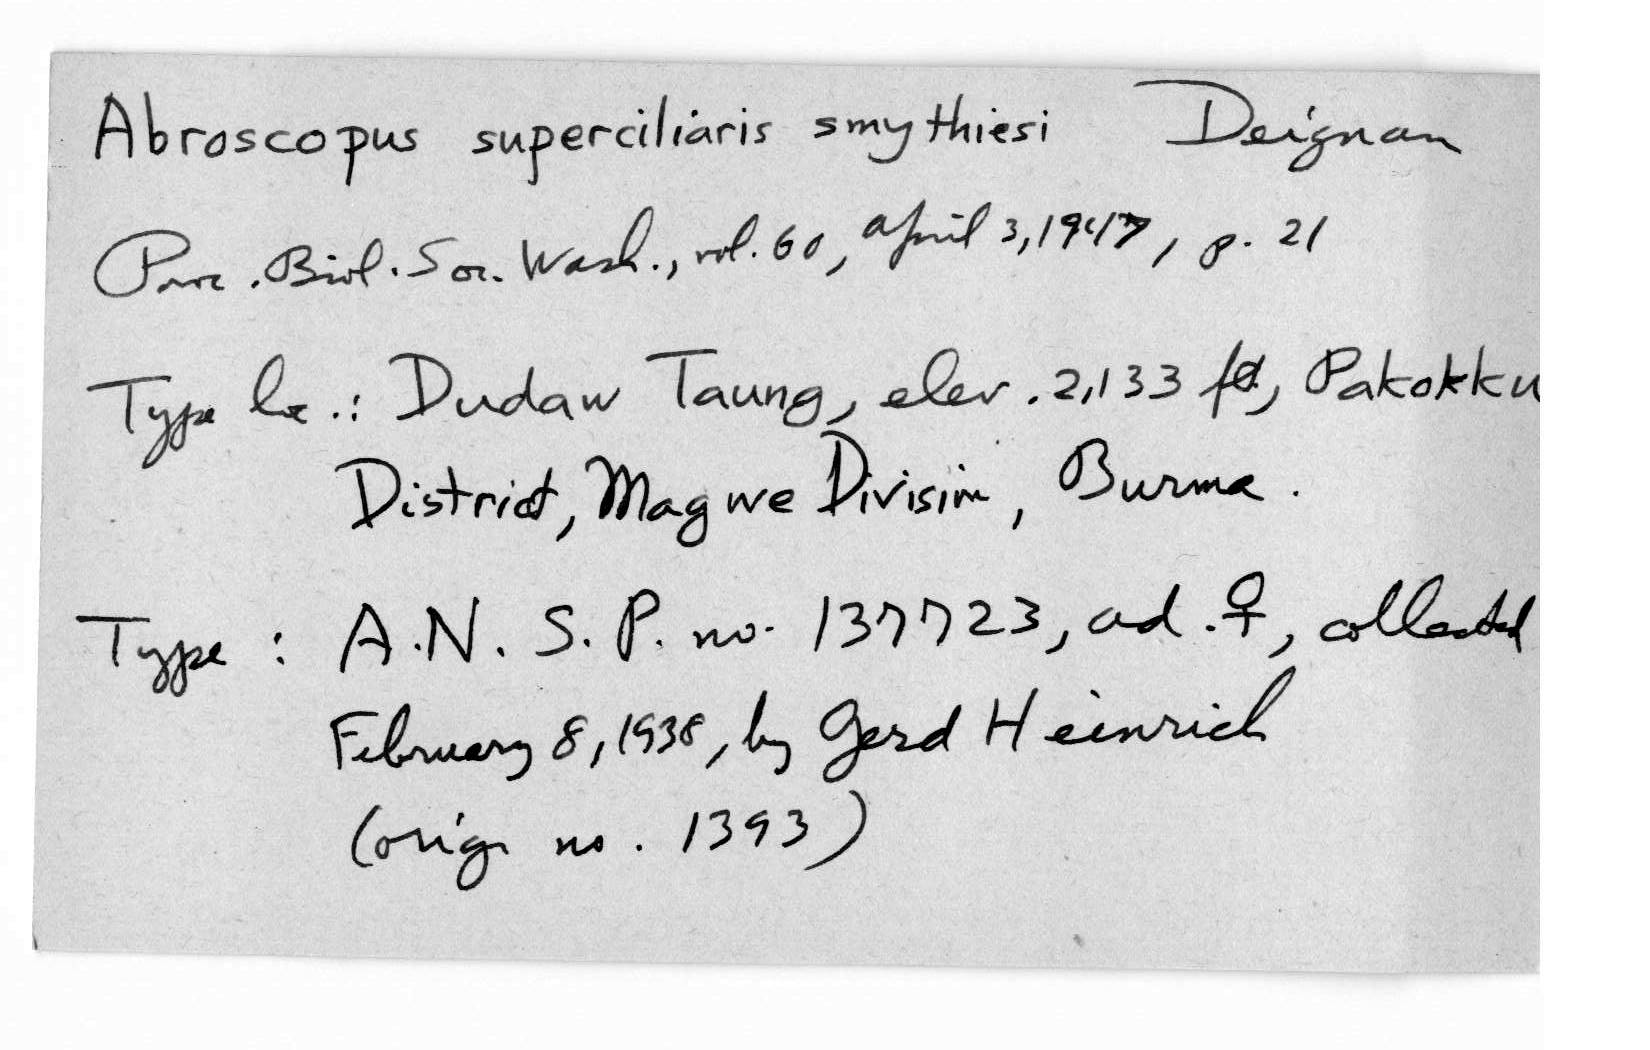 Abroscopus superciliaris smythiesi Deignan
Proc. Biol. Soc. Wash., vol. 60, April 3, 1947, p. 21
Type loc.: Dudaw Taung, elev. 2,133 ft, Pakokku
District, Magwe Division, Burma.
Type: A.N.S.P. no. 137723, ad. ♀, collected
February 8, 1938, by Gerd Heinrich
(orig. no. 1393)